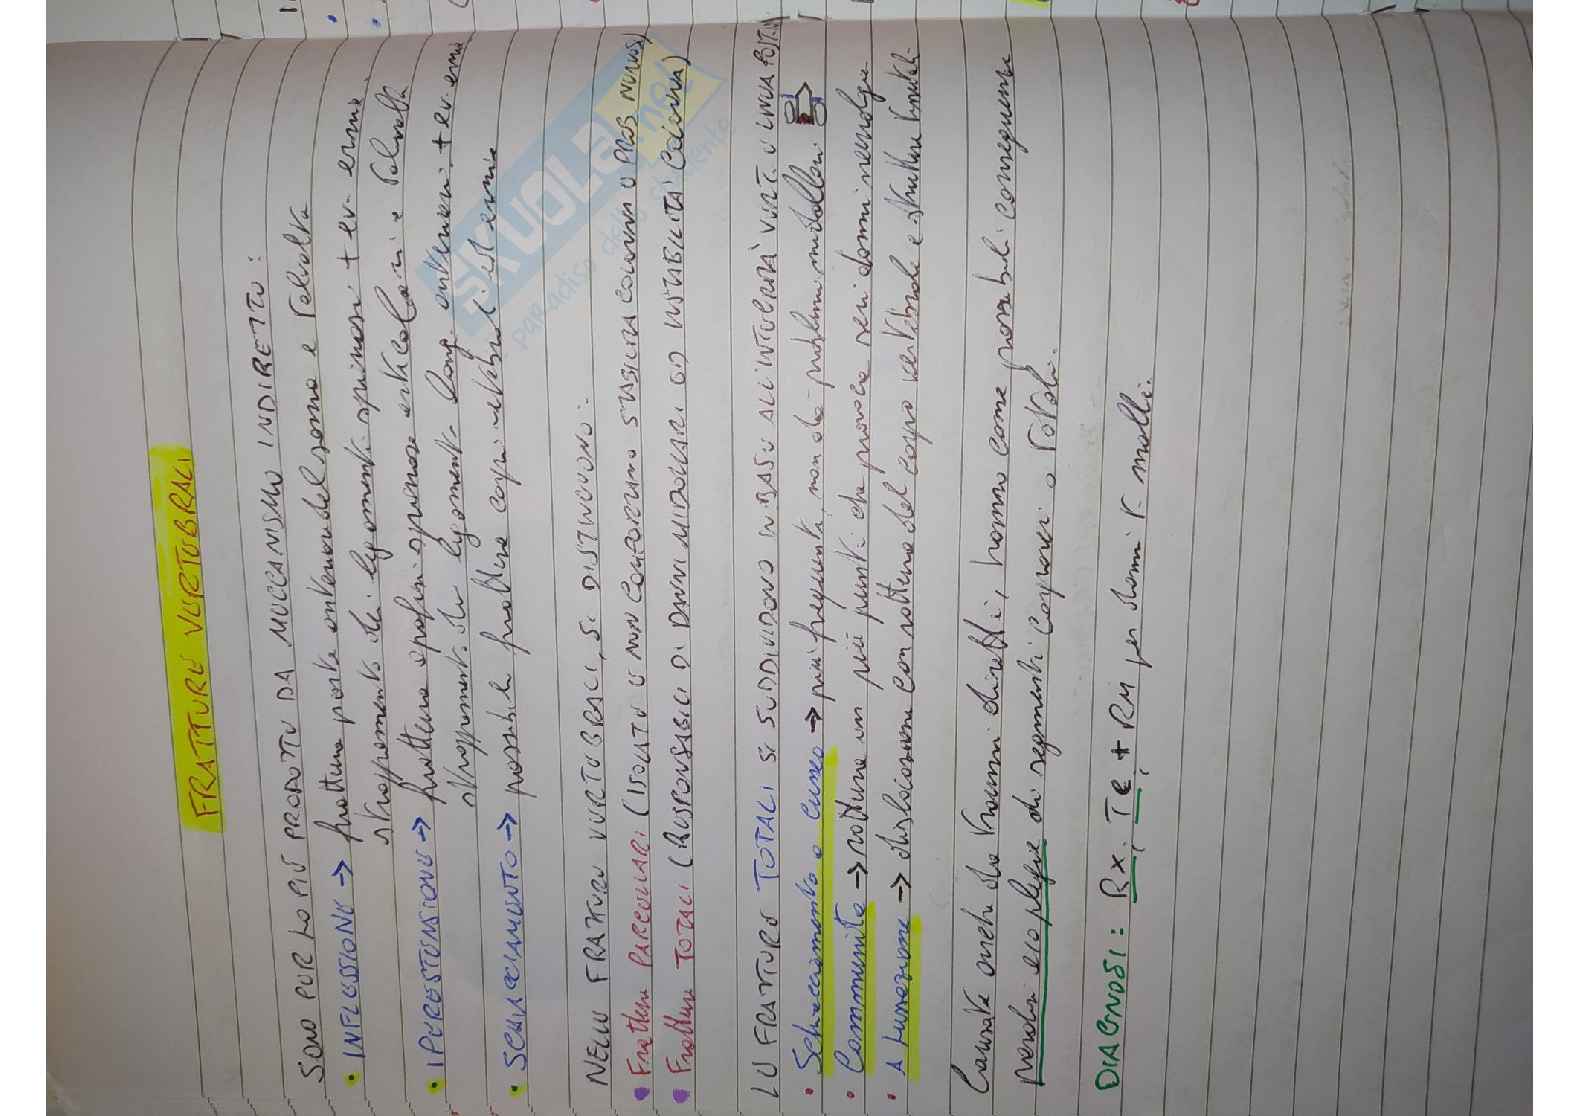 FRATTURE VERTEBRALI
SONO PER LO PIÙ PRODOTTE DA MECCANISMO INDIRETTO:
• INFLESSIONE → frattura parete anteriore del soma e talvolta
strappamento dei legamenti spinosi + ev. ernie.
• IPERESTENSIONE → frattura apofisi spinose articolari e talvolta
strappamento del legamento long. anteriore + ev. ernie
• SCHIACCIAMENTO → possibile frattura corpi vertebrali est ernie
NELLE FRATTURE VERTEBRALI, SI DISTINGUONO:
• Fratture PARCELLARI (ISOLATE E NON COMPORTANO STABILITÀ COLONNA O PROB NERVOSI)
• Fratture TOTALI (RESPONSABILI DI DANNI MIDOLLARI ED INSTABILITÀ COLONNA)
LE FRATTURE TOTALI SI SUDDIVIDONO IN BASE ALL'INTEGRITÀ VERT. E LINEA POST.
• Schiacciamento o cuneo → più frequente, non dà problemi midollari
• Comminuta → rottura in più punti che provoca seri danni neurolog.
• A fusione → dislocazione con rottura del corpo vertebrale e strutture limitrof.
Causate anche da traumi diretti, hanno come possibili conseguenze
paralisi e/o plegie di segmenti corporei o totali.
DIAGNOSI: RX, TC + RM per danni t. molli.
SKUOLA.net
paradiso dello studente